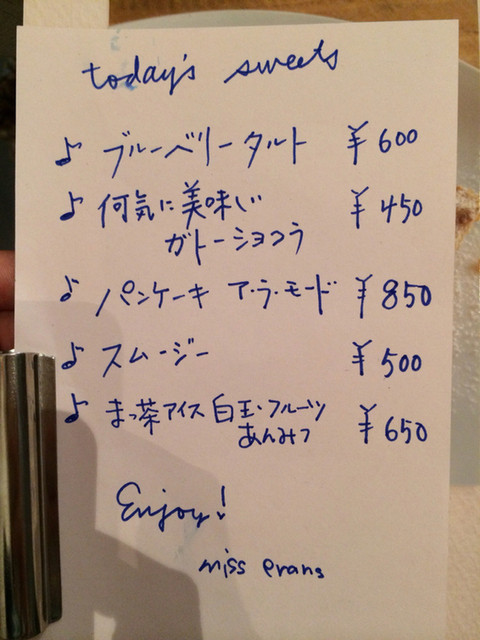 today's sweets
♪ ブルーベリータルト ¥600
♪ 何気に美味しい ¥450
ガトーショコラ
♪ パンケーキ ア・ラ・モード ¥850
♪ スムージー ¥500
♪ まっ茶アイス 白玉・フルーツ ¥650
あんみつ
Enjoy!
miss evans